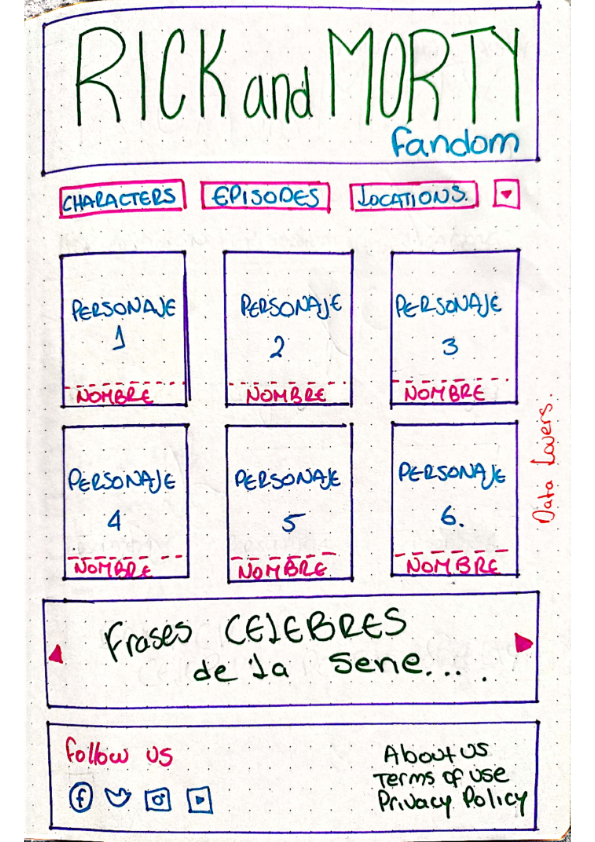 RICK and MORTY
fandom
CHARACTERS EPISODES LOCATIONS.
PERSONAJE 1
PERSONAJE 2
PERSONAJE 3
NOMBRE
NOMBRE
NOMBRE
PERSONAJE 4
PERSONAJE 5
PERSONAJE 6.
NOMBRE
NOMBRE
NOMBRE
Data Lovers.
Frases CELEBRES
de la serie....
follow us
About us
Terms of use
Privacy Policy